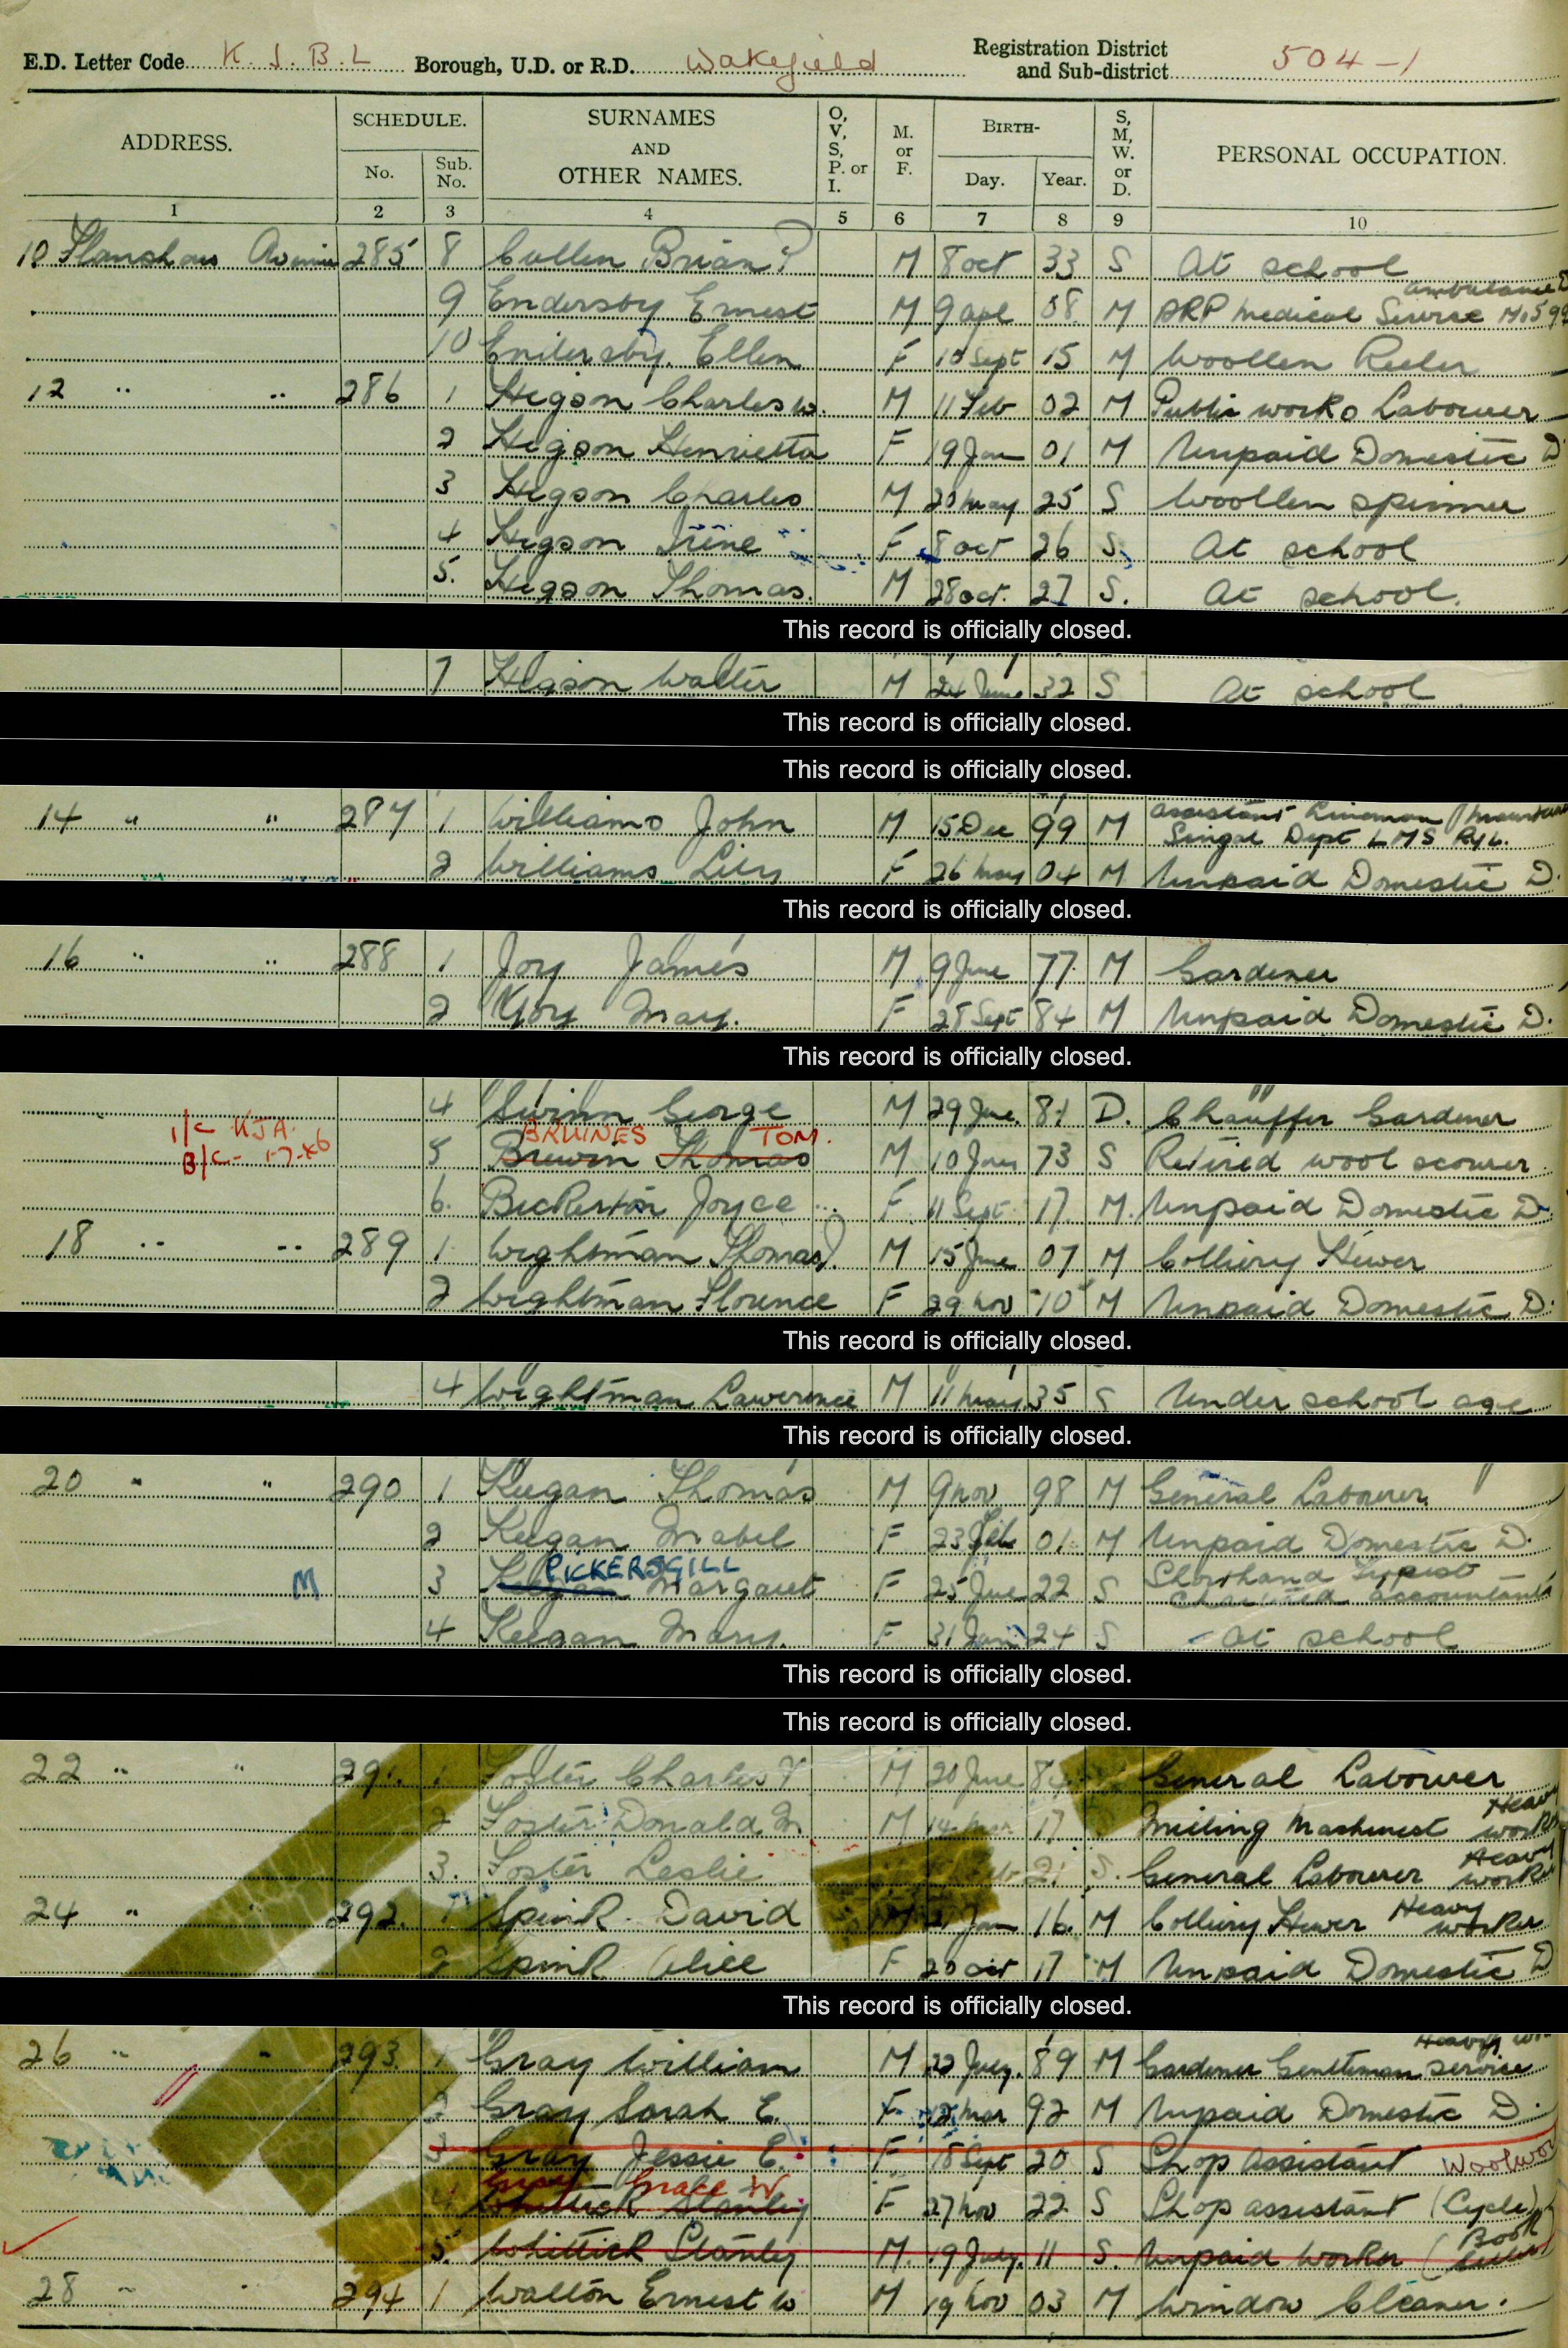 E.D. Letter Code K. J. B. L Borough, U.D. or R.D. Wakefield Registration District and Sub-district 504-1
ADDRESS. SCHEDULE. No. Sub. No. SURNAMES AND OTHER NAMES. O, V, S, P. or I. M. or F. BIRTH- Day. Year. S, M, W. or D. PERSONAL OCCUPATION.
1 2 3 4 5 6 7 8 9 10
10 Flanshaw Avenue 285 8 Cullen Brian P M 8 Oct 33 S At school
9 Endersby Ernest M 9 Apl 08 M ARP Medical Service Ambulance
10 Endersby Ellen F 10 Sept 15 M Woollen Reeler
12 " " 286 1 Higson Charles W. M 11 Feb 02 M Public works Labourer
2 Higson Henrietta F 19 Jan 01 M Unpaid Domestic D
3 Higson Charles M 20 May 25 S Woollen spinner
4 Higson Irene F 8 Oct 26 S At school
5. Higson Thomas. M 28 Oct. 27 S. At school.
This record is officially closed.
7 Higson Walter M 24 June 32 S At school
This record is officially closed.
This record is officially closed.
14 " " 287 1 Williams John M 15 Dec 99 M Assistant Lineman
Singal Dept L M S Ryl.
2 Williams Lily F 26 May 04 M Unpaid Domestic D.
This record is officially closed.
16 " " 288 1 Joy James M 9 June 77 M Gardener
2 Joy May. F 28 Sept 84 M Unpaid Domestic D.
This record is officially closed.
4 Swinn George M 29 June 81 D. Chauffer Gardener
KJA. BRUINES TOM.
B/C- 1-7-46 5 Brewin Thomas M 10 73 S Retired wool scourer.
6. Bickerton Joyce F. 11 Sept 17. M. Unpaid Domestic D.
18 " " 289 1 Wightman Thomas J. M 15 June 07 M Colliery Hewer
2 Wightman Florence F 29 Nov 10 M Unpaid Domestic D.
This record is officially closed.
4 Wightman Lawerence M 11 May 35 S Under school age
This record is officially closed.
20 " " 290 1 Keegan Thomas M 9 Nov 98 M General Labourer.
2 Keegan Mabel F 23 Feb 01 M Unpaid Domestic D.
PICKERSGILL
M 3 Keegan Margaret F 25 June 22 S Shorthand Typist
Chartered Accountants
4 Keegan Mary. F 31 Jan 24 S At school
This record is officially closed.
This record is officially closed.
22 " " 291. 1 Foster Charles M 20 June General Labourer
2 Foster Donald M. M 14 Mar 17 Milling Machinest Heavy work
3. Foster Leslie 21 S. General Labourer Heavy work
24 " " 292. 1 Spink David M 21 Jan 16. M Colliery Hewer Heavy worker
2 Spink Alice F 20 Oct 17 M Unpaid Domestic D
This record is officially closed.
26 " " 293. 1 Gray William M 22 July. 89 M Gardener Gentleman service Heavy
2 Gray Sarah E. F 12 Mar 92 M Unpaid Domestic D.
3 Gray Jessie E. F 18 Sept 20 S Shop Assistant Woolwor
Gray Grace W
4 Whittick Stanley F 27 Nov 22 S Shop assistant (Cycle)
5. Whittick Stanley M. 19 July. 11 S. Unpaid Worker (Book
28 " " 294 1 Walton Ernest W M 19 Nov 03 M Window Cleaner.